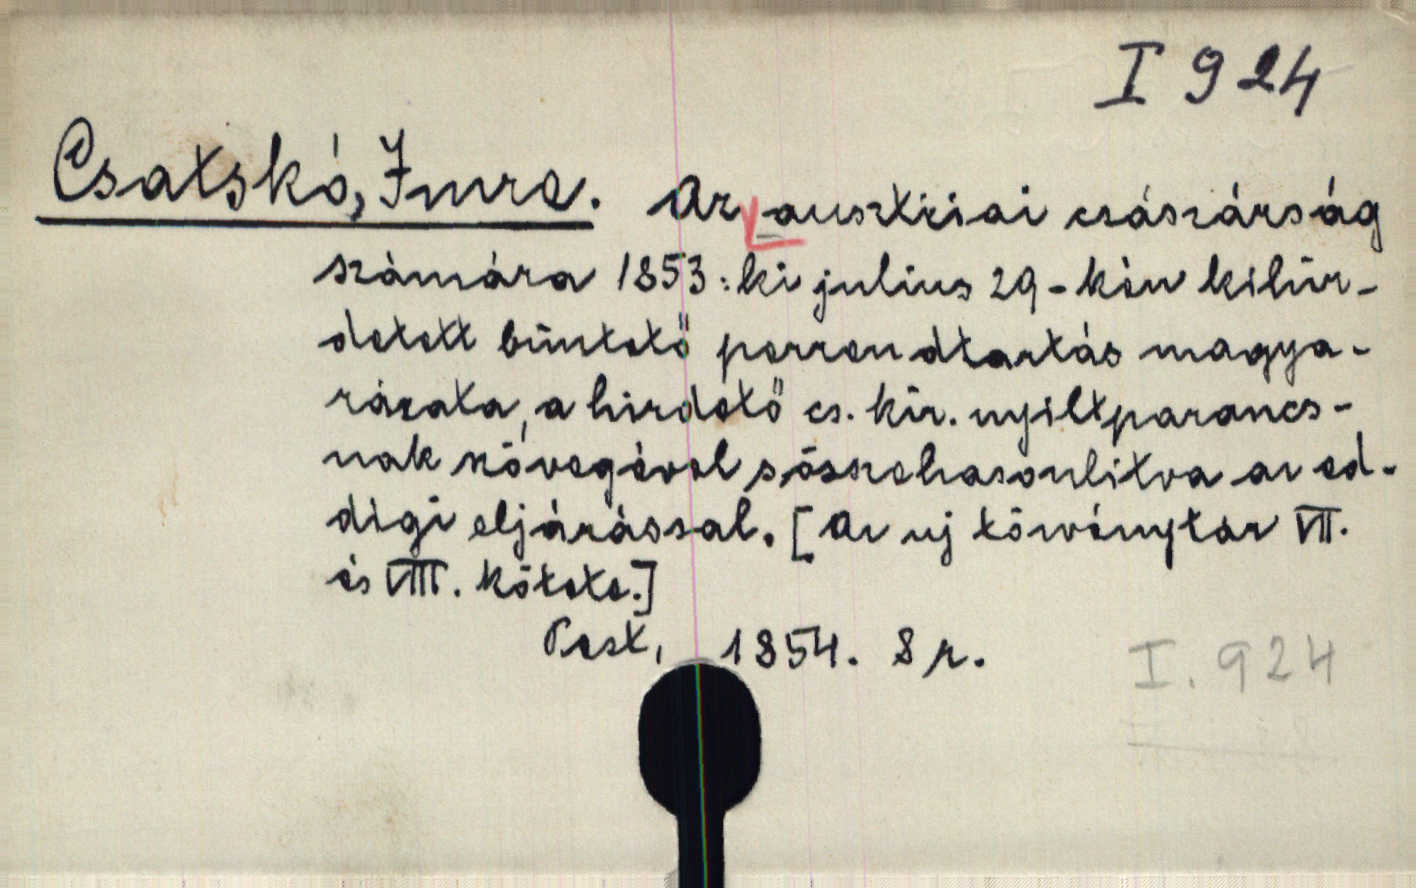 I 924
Csatskó, Imre. Az ausztriai császárság
számára 1853: ki julius 29-kén kihir-
detett büntető perrendtartás magya-
rázata, a hirdető cs. kir. nyiltparancs-
nak szövegével s összehasonlitva az ed-
digi eljárással. [Az uj törvénytár VII.
és VIII. kötete.]
Pest, 1854. 8 r.
I. 924